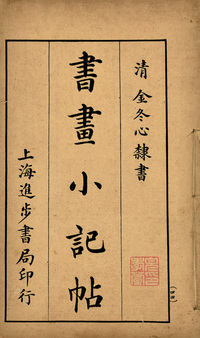 清 金冬心隸書
書畫小記帖
上海進步書局印行